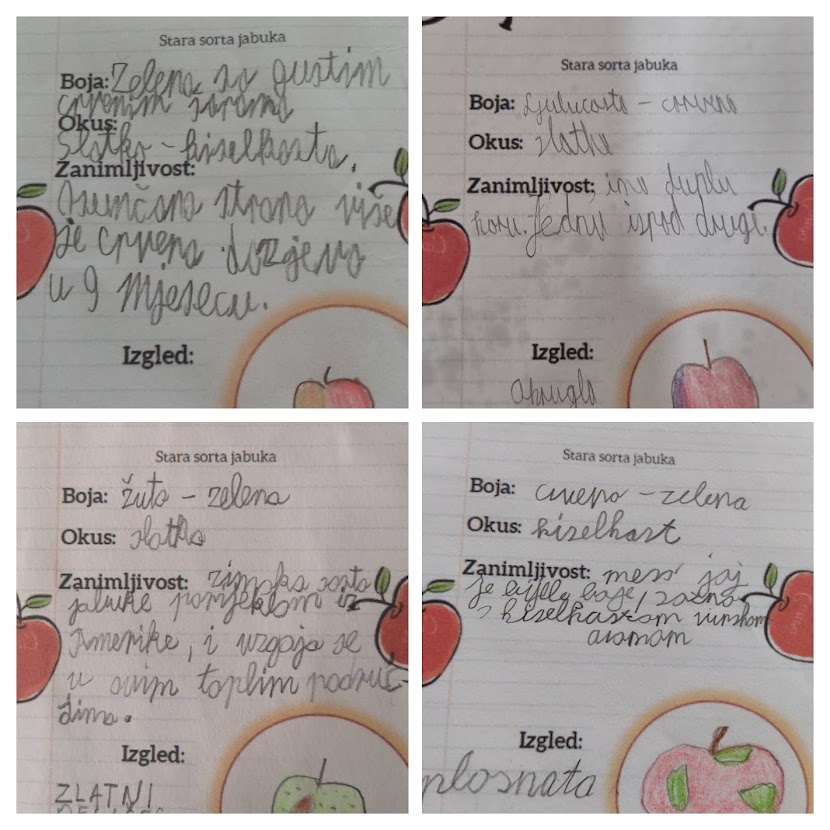 Stara sorta jabuka
Boja: Zelena sa gustim
crvenim šarama
Okus:
Slatko - kiselkasta.
Zanimljivost:
Osunčana strana više
je crvena. dozrjeva
u 9 mjesecu.
Izgled:
Stara sorta jabuka
Boja: - crvena
Okus: slatka
Zanimljivost: ima duplu
koru. Jednu ispod druge.
Izgled:
okruglo
Stara sorta jabuka
Boja: žuta - zelena
Okus: slatka
Zanimljivost: zimska sorta
jabuke porijeklom iz
Amerike, i uzgaja se
u svim toplim područ-
jima.
Izgled:
ZLATNI
Stara sorta jabuka
Boja: crveno - zelena
Okus: kiselkast
Zanimljivost: meso joj
je bijele boje, sočno
s kiselkastom vinskom
aromom
Izgled:
plosnata